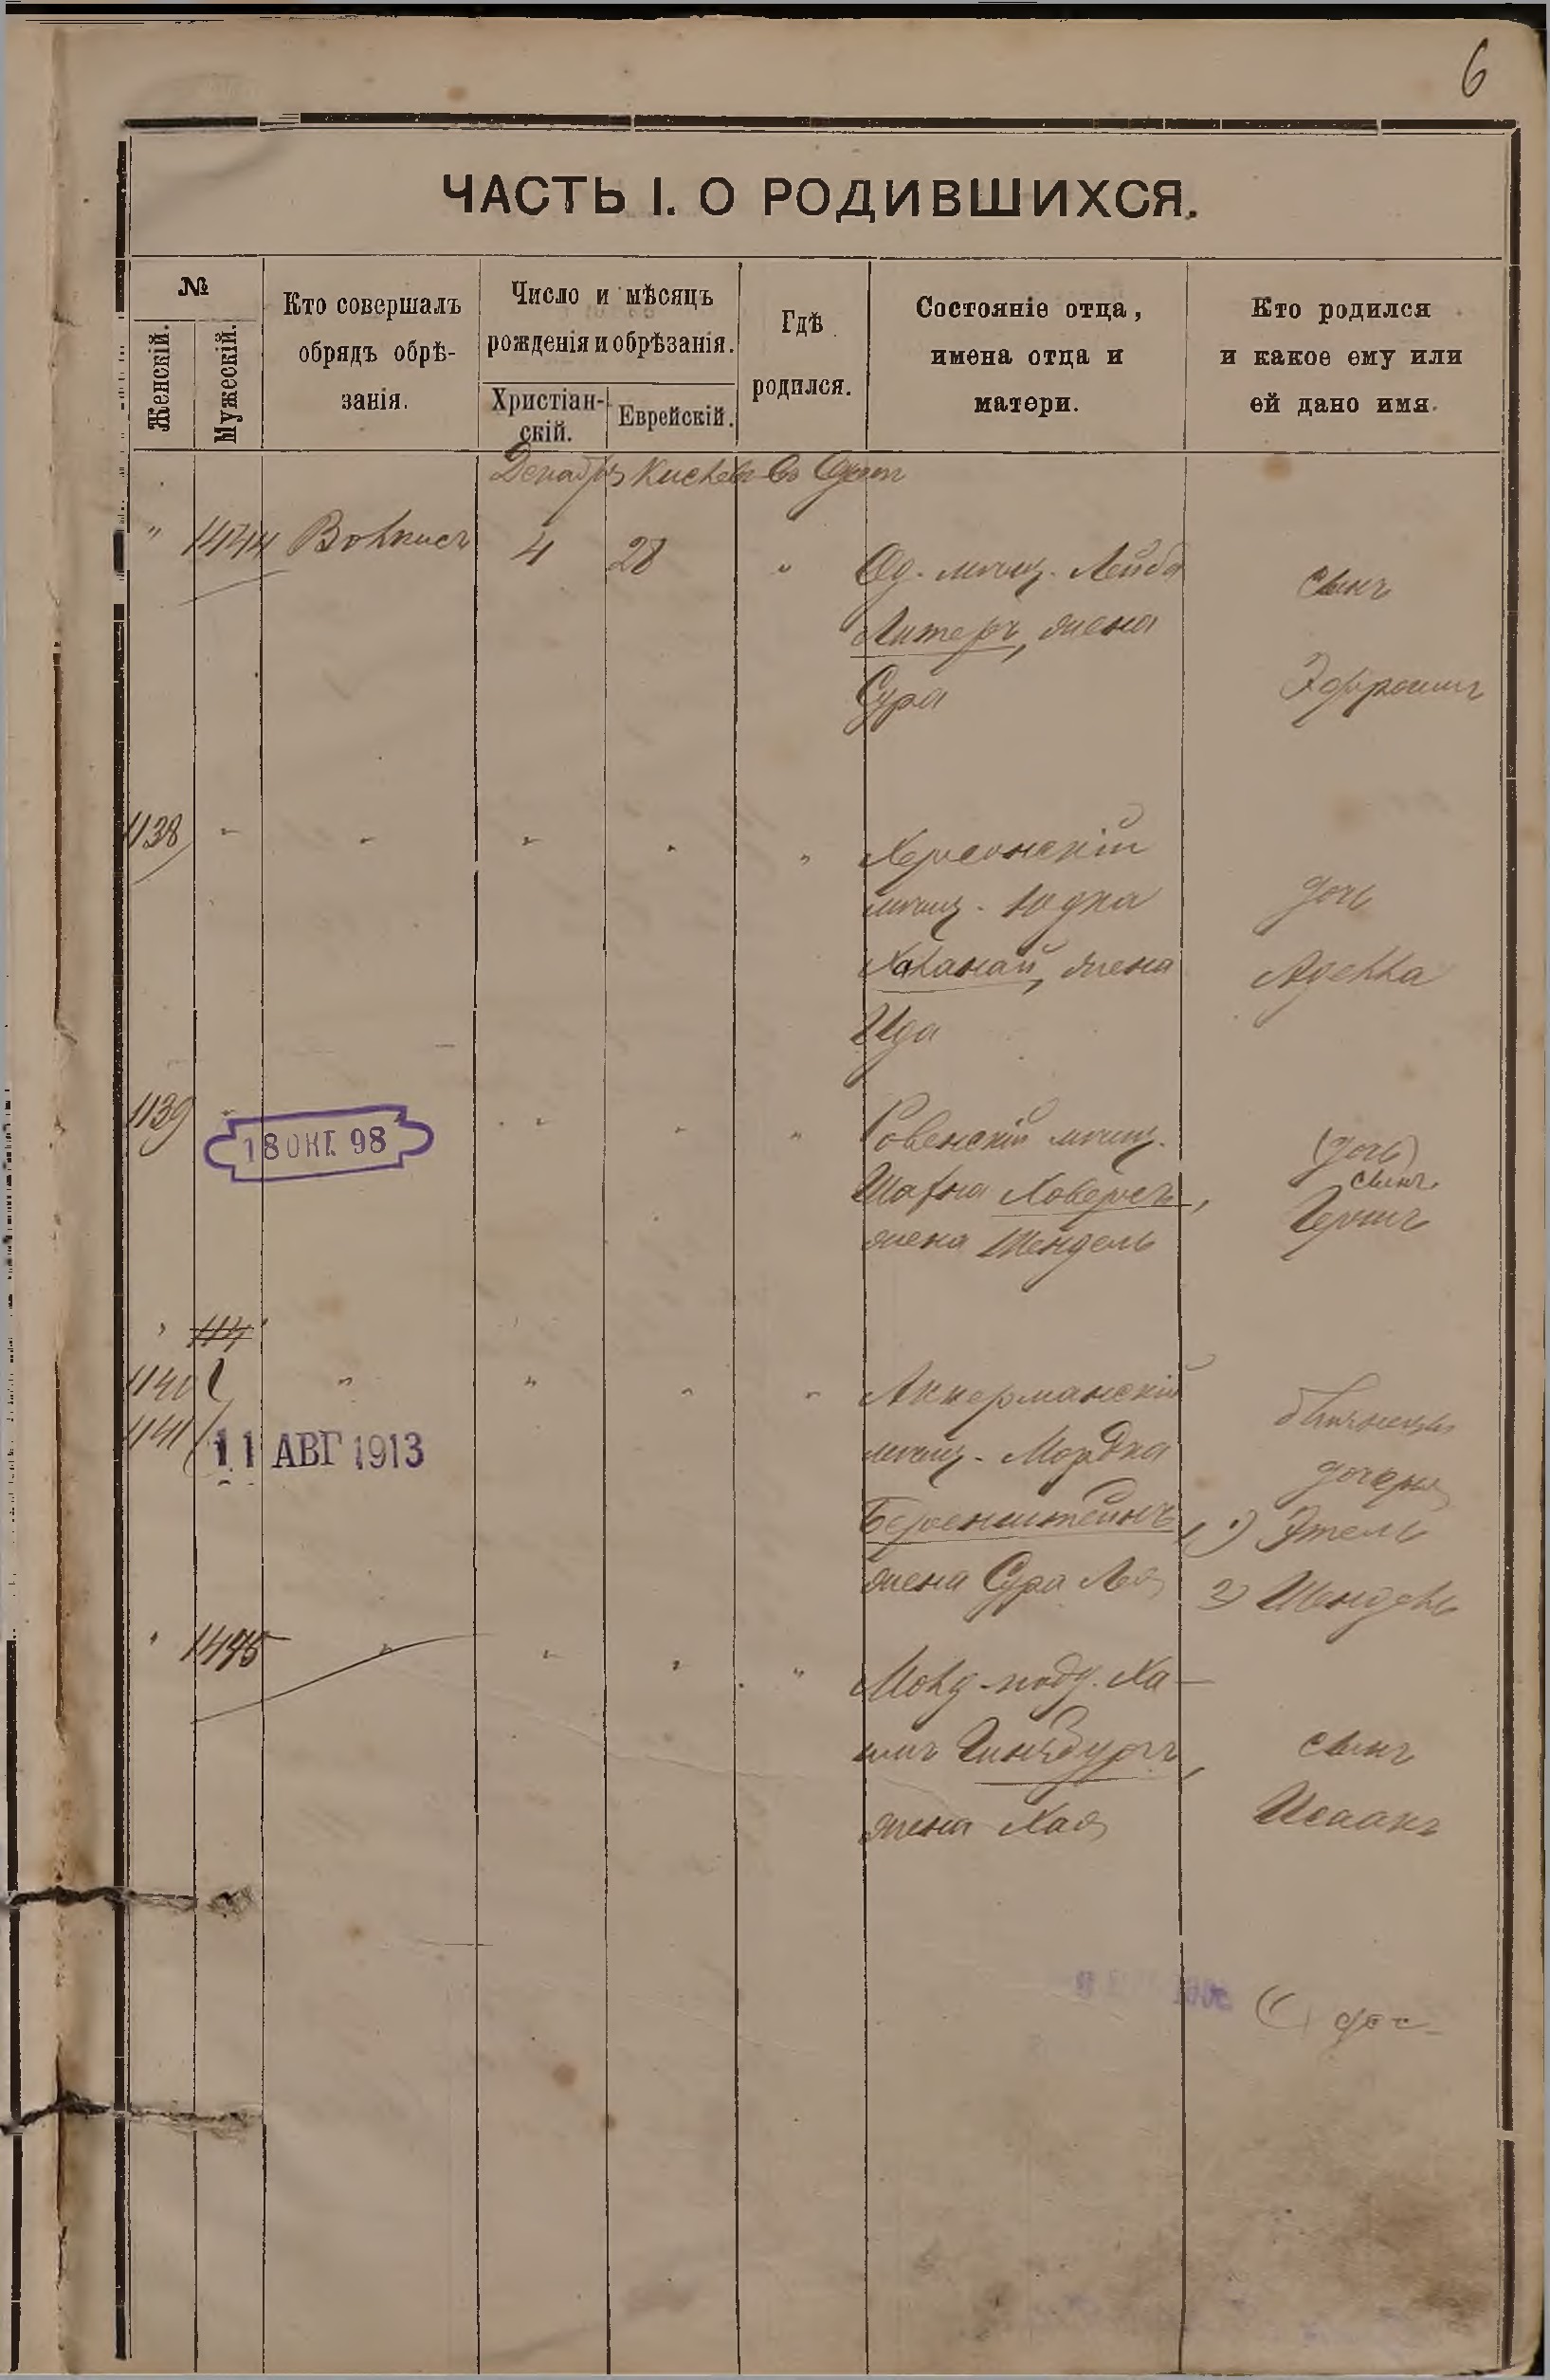 6
ЧАСТЬ I. О РОДИВШИХСЯ.
№
Женскій.
Мужескій.
Кто совершалъ
обрядъ обрѣ-
занія.
Число и мѣсяцъ
рожденія и обрѣзанія.
Христіан-
скій.
Еврейскій.
Гдѣ
родился.
Состояніе отца,
имена отца и
матери.
Кто родился
и какое ему или
ей дано имя.
Декабрь Кислевъ Въ Одессѣ
" 1444 Волкисъ 4 28 " Од. мѣщ. Лейба
Литеръ, жена
Сура
сынъ
Эфроимъ
1138 " " " " " Херсонскій
мѣщ. Юдка
Халанай, жена
Ида
дочь
Аделла
1139 " " " " Ровенскій мѣщ.
18 ОКТ. 98
Шахна Хаверсъ,
жена Шендель
(дочь)
сынъ
Гершъ
" 114
1140 " " " " Аккерманскій
1141
11 АВГ 1913
мѣщ. Мордка
Беренштейнъ,
жена Сура Лея
близнецы
дочери
1) Этель
2) Шендель
" 1445 " " " " Молд. подд. Ха-
имъ Гинзбургъ,
жена Хая
сынъ
Исаакъ